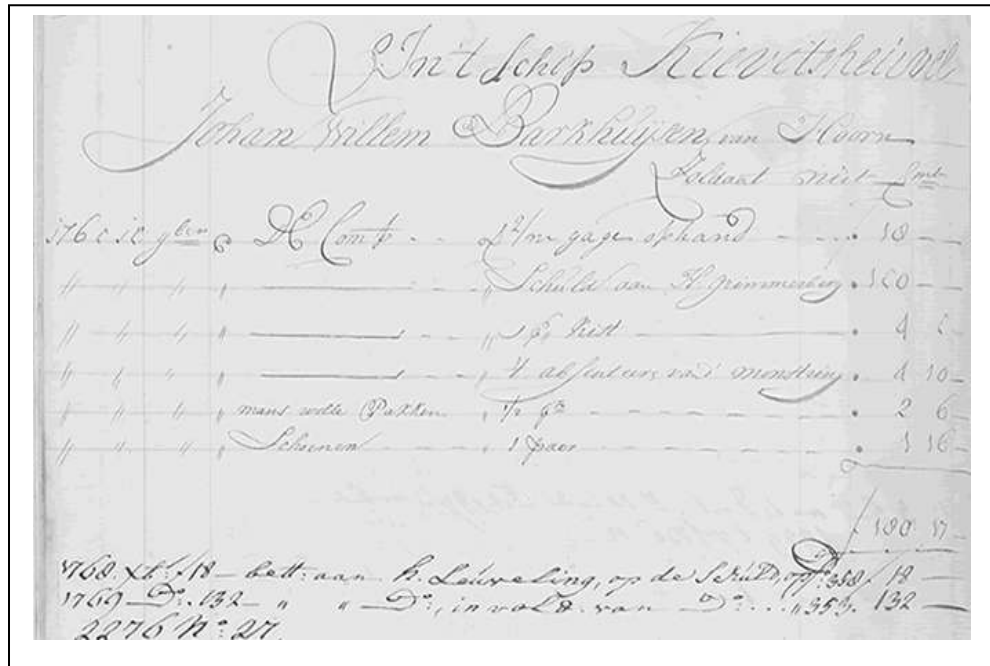 In't Schip Kievitsheuvel
Johan Willem Barkhuijsen van Hoorn
Soldaat niet
De Comp . . 2/m gage op hand . 18 —
" " " " ——— " Schuld aan H. Grimmenberg . 150 —
" " " " ——— " 1 ps kist . 4
" " " " ——— " absenteren van d' monstering . 4 10 —
" " " " mans wolle Pakken " 1/2 . 2 6 —
" " " " Schoenen " 1 paar . 1 16 —
/ 180 17
1768 18 — bett: aan h. Leuveling, op de Schuld, opf: 358 / 18 —
1769 — Do: 132 — " " — Do:, in vold: van — Do: . . . " 353. 132 —
2276 No: 27.